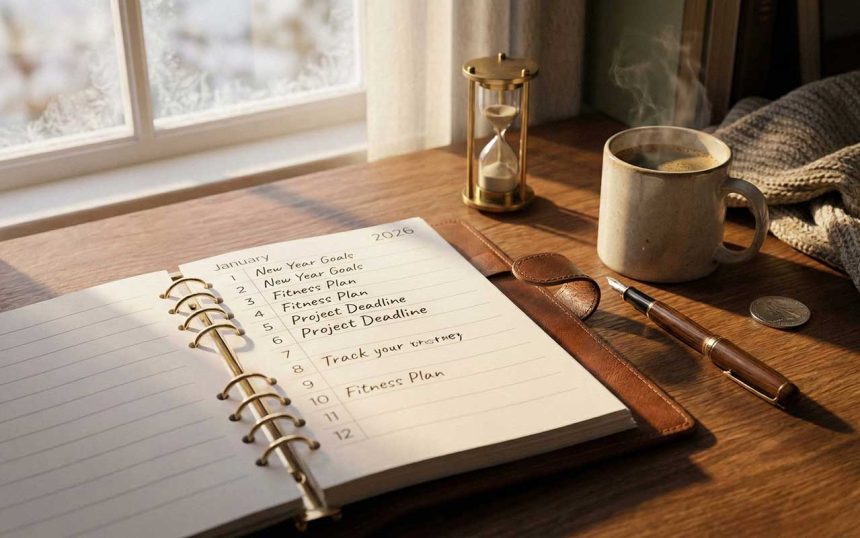 January 2026
1 New Year Goals
2 New Year Goals
3 Fitness Plan
4 Fitness Plan
5 Project Deadline
6 Project Deadline
7
8 Track your
9
10 Fitness Plan
11
12